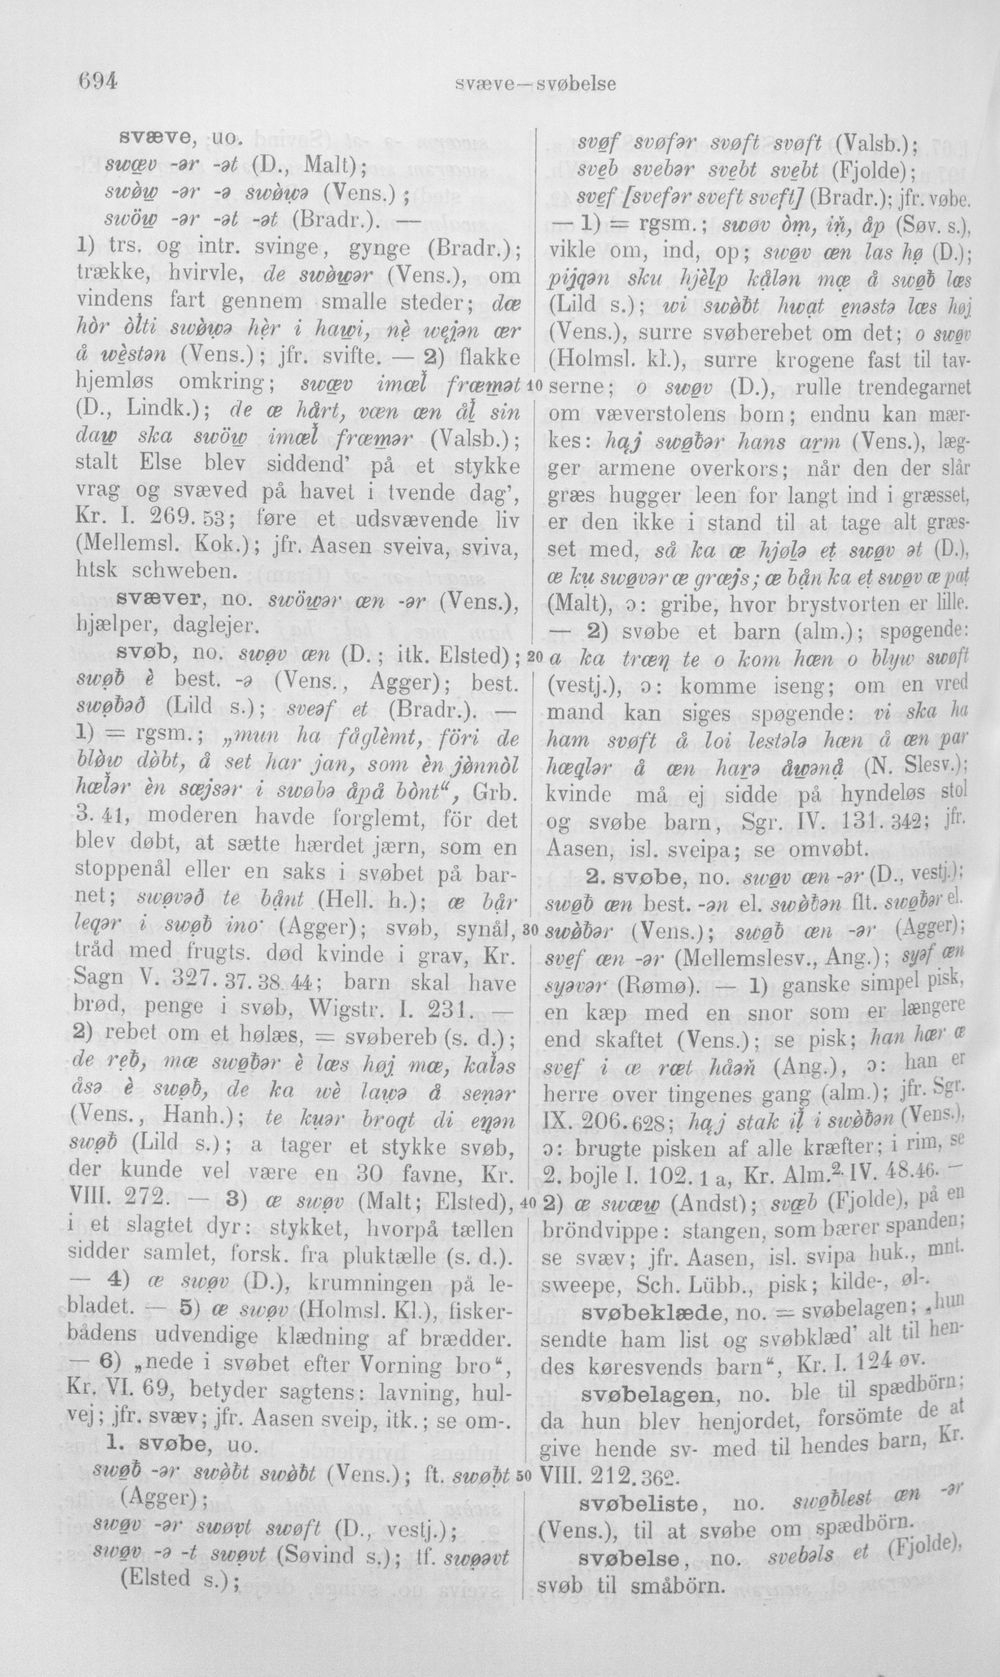 694
svæve—svøbelse
svæve, uo.
swæv -ər -ət (D., Malt);
swòw -ər -ə swòwə (Vens.);
swöw -ər -ət -ət (Bradr.). —
1) trs. og intr. svinge, gynge (Bradr.);
trække, hvirvle, de swòwər (Vens.), om
vindens fart gennem smalle steder; dæ
hòr òlti swòwə hèr i hawi, nè węjən ær
å wèstən (Vens.); jfr. svifte. — 2) flakke
hjemløs omkring; swæv imæł fræmət
(D., Lindk.); de æ hårt, væn æn ål sin
daw ska swöw imæł fræmər (Valsb.);
stalt Else blev siddend' på et stykke
vrag og svæved på havet i tvende dag',
Kr. I. 269. 53; føre et udsvævende liv
(Mellemsl. Kok.); jfr. Aasen sveiva, sviva,
htsk schweben.
svæver, no. swöwər æn -ər (Vens.),
hjælper, daglejer.
svøb, no. swøv æn (D.; itk. Elsted);
swøƀ è best. -ə (Vens., Agger); best.
swøƀəð (Lild s.); sveəf et (Bradr.). —
1) = rgsm.; „mun ha fåglèmt, föri de
blòw dòbt, å set har jan, som èn jònnòl
hæłər èn sæjsər i swøbə åpå bònt“, Grb.
3. 41, moderen havde forglemt, för det
blev døbt, at sætte hærdet jærn, som en
stoppenål eller en saks i svøbet på bar-
net; swøvəð te bånt (Hell. h.); æ bår
leqər i swøƀ ino· (Agger); svøb, synål,
tråd med frugts. død kvinde i grav, Kr.
Sagn V. 327. 37. 38. 44; barn skal have
brød, penge i svøb, Wigstr. I. 231. —
2) rebet om et hølæs, = svøbereb (s. d.);
de ręƀ, mæ swøƀər è læs høj mæ, kałəs
åsə è swøƀ, de ka wè lawə å senər
(Vens., Hanh.); te kuər broqt di eŋən
swøƀ (Lild s.); a tager et stykke svøb,
der kunde vel være en 30 favne, Kr.
VIII. 272. — 3) æ swøv (Malt; Elsted),
i et slagtet dyr: stykket, hvorpå tællen
sidder samlet, forsk. fra pluktælle (s. d.).
— 4) æ swøv (D.), krumningen på le-
bladet. — 5) æ swøv (Holmsl. Kl.), fisker-
bådens udvendige klædning af brædder.
— 6) „nede i svøbet efter Vorning bro“,
Kr. VI. 69, betyder sagtens: lavning, hul-
vej; jfr. svæv; jfr. Aasen sveip, itk.; se om-.
1. svøbe, uo.
swøƀ -ər swòƀt swòƀt (Vens.); ft. swøƀt
(Agger);
swøv -ər swøvt swøft (D., vestj.);
swøv -ə -t swøvt (Søvind s.); tf. swøəvt
(Elsted s.);
svøf svøfər svøft svøft (Valsb.);
svęb svebər svębt svębt (Fjolde);
svęf [svefər sveft sveft] (Bradr.); jfr. vøbe.
— 1) = rgsm.; swøv òm, iň, åp (Søv. s.),
vikle om, ind, op; swøv æn las hø (D.);
pijqən sku hjèlp kålən mæ å swøƀ læs
(Lild s.); wi swòƀt hwat enəstə læs høj
(Vens.), surre svøberebet om det; o swøv
(Holmsl. kl.), surre krogene fast til tav-
10 serne; o swøv (D.), rulle trendegarnet
om væverstolens bom; endnu kan mær-
kes: haj swøƀər hans arm (Vens.), læg-
ger armene overkors; når den der slår
græs hugger leen for langt ind i græsset,
er den ikke i stand til at tage alt græs-
set med, så ka æ hjølə et swøv ət (D.),
æ ku swøvər æ græjs; æ bån ka et swøv æ pat
(Malt), ɔ: gribe, hvor brystvorten er lille.
— 2) svøbe et barn (alm.); spøgende:
20 a ka træŋ te o kom hæn o blyw swøft
(vestj.), ɔ: komme iseng; om en vred
mand kan siges spøgende: vi ska ha
ham svøft å loi lestələ hæn å æn par
hæqlər å æn harə åwənå (N. Slesv.);
kvinde må ej sidde på hyndeløs stol
og svøbe barn, Sgr. IV. 131. 342; jfr.
Aasen, isl. sveipa; se omvøbt.
2. svøbe, no. swøv æn -ər (D., vestj.);
swøƀ æn best. -ən el. swòƀən flt. swøƀər el.
30 swòƀər (Vens.); swøƀ æn -ər (Agger);
svęf æn -ər (Mellemslesv., Ang.); syəf æn
syəvər (Rømø). — 1) ganske simpel pisk,
en kæp med en snor som er længere
end skaftet (Vens.); se pisk; han hær æ
svęf i æ ræt håəň (Ang.), ɔ: han er
herre over tingenes gang (alm.); jfr. Sgr.
IX. 206. 628; haj stak il i swòƀən (Vens.),
ɔ: brugte pisken af alle kræfter; i rim, se
2. bojle I. 102. 1 a, Kr. Alm.² IV. 48.46. —
40 2) æ swæw (Andst); svæb (Fjolde), på en
bröndvippe: stangen, som bærer spanden;
se svæv; jfr. Aasen, isl. svipa huk., mnt.
sweepe, Sch. Lübb., pisk; kilde-, øl-.
svøbeklæde, no. = svøbelagen; „hun
sendte ham list og svøbklæd' alt til hen-
des køresvends barn“, Kr. I. 124 øv.
svøbelagen, no. ble til spædbörn;
da hun blev henjordet, forsömte de at
give hende sv- med til hendes barn, Kr.
50 VIII. 212. 362.
svøbeliste, no. swøƀlest æn -ər
(Vens.), til at svøbe om spædbörn.
svøbelse, no. svebəls et (Fjolde),
svøb til småbörn.